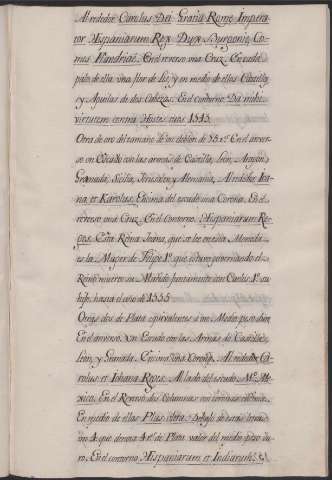 Al rededor Carolus Dei Gratia Roma Impera
tor Hispaniarum Rex Dux Burgonie, Co
mes Flandriæ. En el reverso una Cruz. En cada
palo de ella una flor de Lis, y en medio de ellas Castillo,
y Aguilas de dos Cabezas. En el contorno. Da mihi
virtutem contra Hostes tuos 1545.
Otra de oro del tamaño de un doblon de En el anver
so un Escudo con las armas de Castilla, Leon, Aragon
Granada, Sicilia, Jerusalen y Alemania. Al rededor Joa
na, et Karolus. Encima del escudo una Corona. En el
reverso una Cruz. En el Contorno. Hispaniarum Re
ges. Esta Reina Juana, que se lee en esta Moneda
es la Muger de Felipe 1º que estuvo governando el
Reino muerto su Marido juntamente con Carlos 1º su
hijo, hasta el año de 1555
Otras dos de Plata equivalentes a un Medio peso duro
En el anverso. Un Escudo con las Armas de Castilla,
Leon, y Granada. Encima una Corona. Al rededor Ca
rolus et Iohana Reges. Al lado del escudo. Mº Me
xico. En el Reverso dos Columnas con coronas
En medio de ellas Plus Ultra. Debajo de estas letras
un 4. que denota 4 rs. de Plata valor del medio peso du
ro. En el contorno Hispaniarum et Indiarum. &